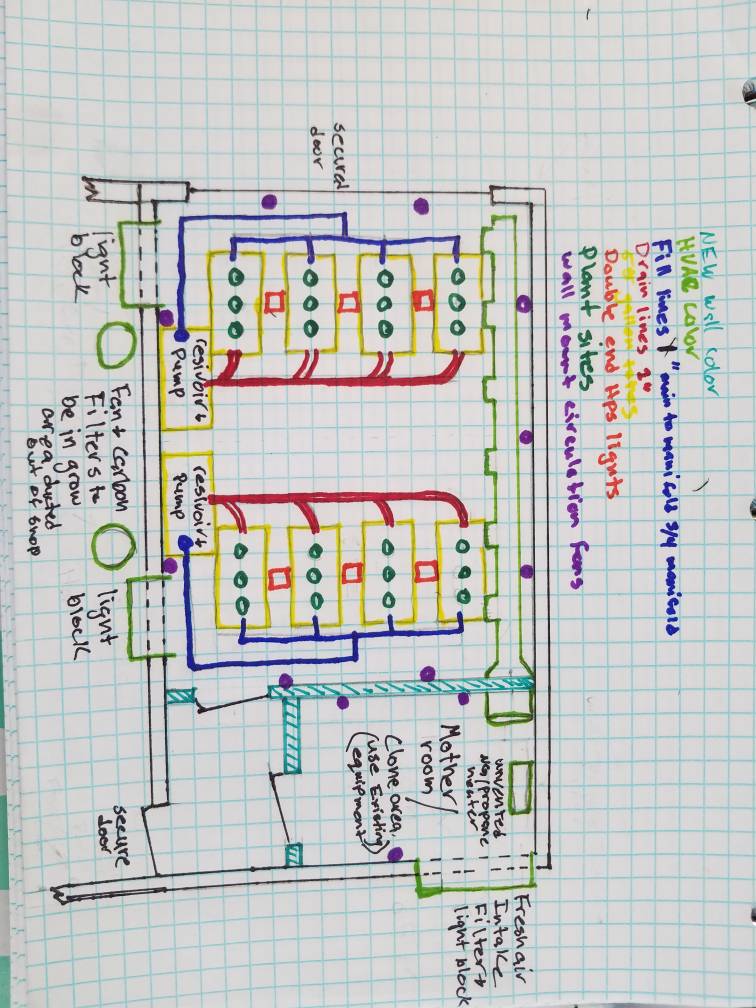 NEW wall color
HVAC color
Fill lines 1" main to manifold 3/4 manifold
Drain lines 2"
gallon totes
Double end Hps lights
Plant sites
wall mount circulation fans
secure
door
light
block
resivoir+
Pump
Fan + Carbon
Filters to
be in grow
area, ducted
out of shop
resivoir+
Pump
light
block
Mother/
room
Clone area.
(use Existing
equipment)
unvented
propane
heater
secure
door
Fresh air
Intake
Filter+
light block